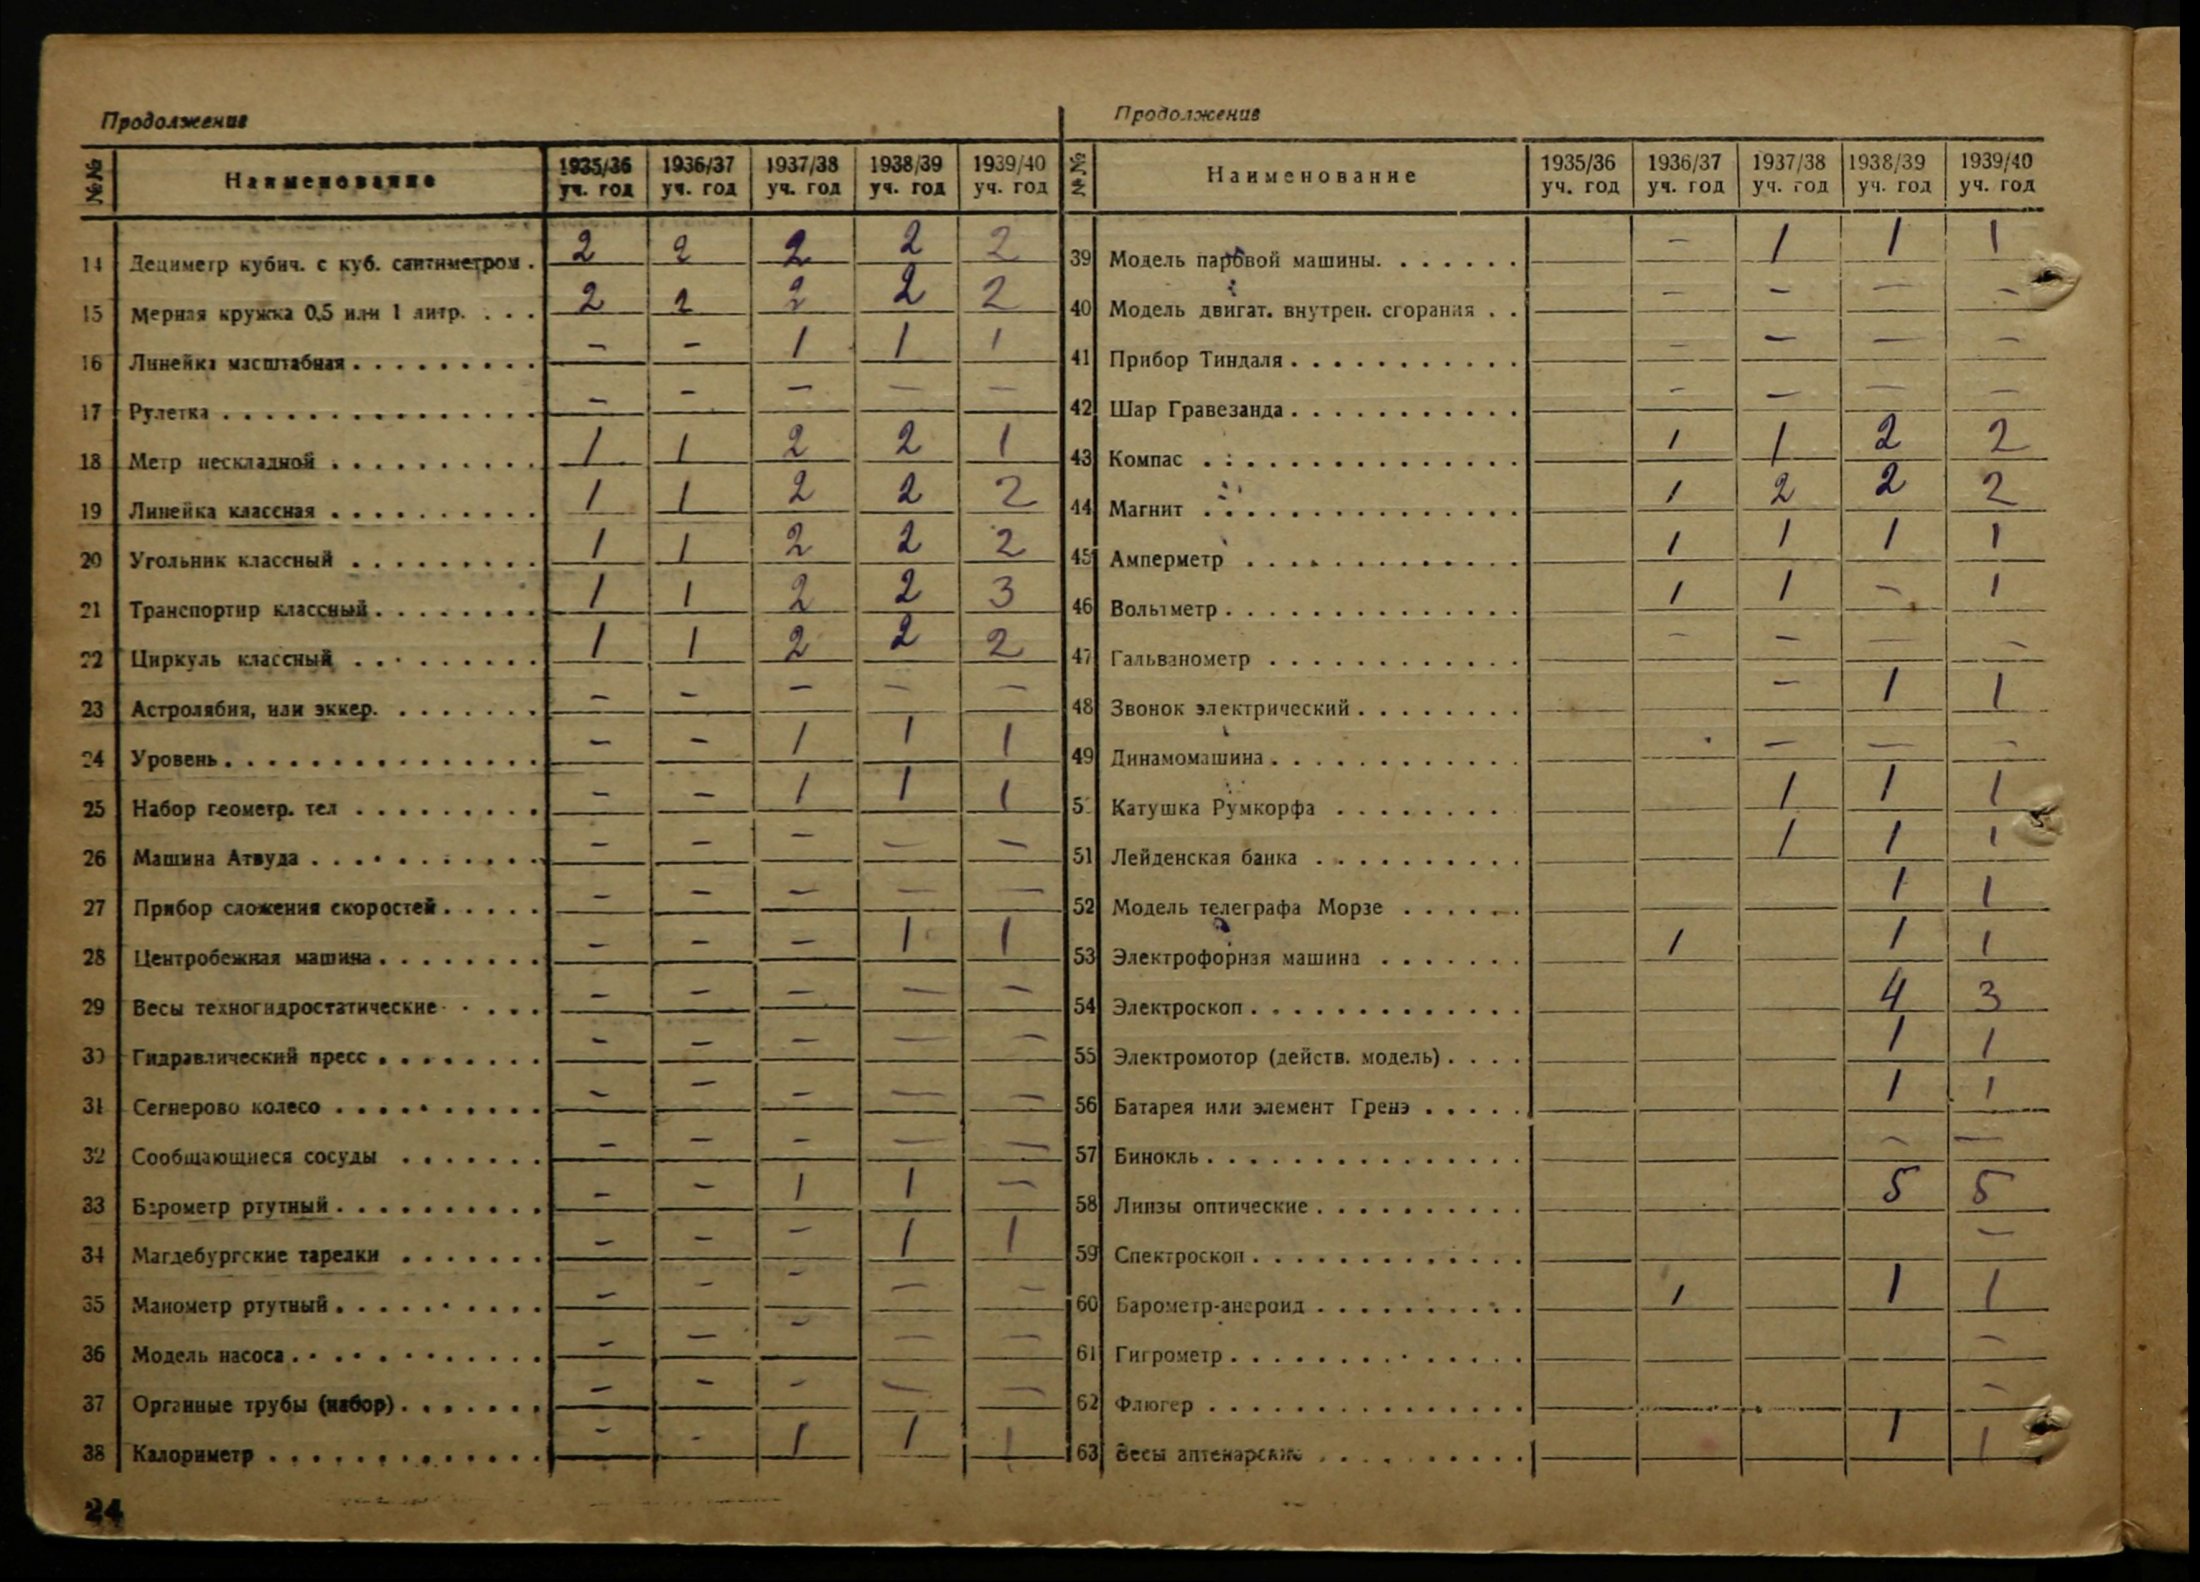 Продолжение
№№ Наименование 1935/36 уч. год 1936/37 уч. год 1937/38 уч. год 1938/39 уч. год 1939/40 уч. год
14 Дециметр кубич. с куб. сантиметром . 2 2 2 2 2
15 Мерная кружка 0,5 или 1 литр. . . . 2 2 2 2 2
16 Линейка масштабная . . . . . . . . . – – 1 1 1
17 Рулетка . . . . . . . . . . . . . . . – – – – –
18 Метр нескладной . . . . . . . . . . 1 1 2 2 1
19 Линейка классная . . . . . . . . . . 1 1 2 2 2
20 Угольник классный . . . . . . . . . 1 1 2 2 2
21 Транспортир классный . . . . . . . . 1 1 2 2 3
22 Циркуль классный . . . . . . . . . 1 1 2 2 2
23 Астролябия, или эккер. . . . . . . . – – – – –
24 Уровень . . . . . . . . . . . . . . . – – 1 1 1
25 Набор геометр. тел . . . . . . . . . – – 1 1 1
26 Машина Атвуда . . . . . . . . . . . – – – – –
27 Прибор сложения скоростей . . . . . – – – – –
28 Центробежная машина . . . . . . . . – – – 1 1
29 Весы техногидростатические . . . . . – – – – –
30 Гидравлический пресс . . . . . . . . – – – – –
31 Сегнерово колесо . . . . . . . . . . – – – – –
32 Сообщающиеся сосуды . . . . . . . – – – – –
33 Барометр ртутный . . . . . . . . . . – – 1 1 –
34 Магдебургские тарелки . . . . . . . – – – 1 1
35 Манометр ртутный . . . . . . . . . . – – – – –
36 Модель насоса . . . . . . . . . . . . – – – – –
37 Органные трубы (набор) . . . . . . . – – – – –
38 Калориметр . . . . . . . . . . . . . – – 1 1 1
24
Продолжение
№№ Наименование 1935/36 уч. год 1936/37 уч. год 1937/38 уч. год 1938/39 уч. год 1939/40 уч. год
39 Модель паровой машины. . . . . . . – 1 1 1
40 Модель двигат. внутрен. сгорания . . – – – –
41 Прибор Тиндаля . . . . . . . . . . . – – – –
42 Шар Гравезанда . . . . . . . . . . . – – – –
43 Компас . . . . . . . . . . . . . . . 1 1 2 2
44 Магнит . . . . . . . . . . . . . . . 1 2 2 2
45 Амперметр . . . . . . . . . . . . . 1 1 1 1
46 Вольтметр . . . . . . . . . . . . . . 1 1 – 1
47 Гальванометр . . . . . . . . . . . . – – – –
48 Звонок электрический . . . . . . . . – 1 1
49 Динамомашина . . . . . . . . . . . . – – –
5 Катушка Румкорфа . . . . . . . . 1 1 1
51 Лейденская банка . . . . . . . . . . 1 1 1
52 Модель телеграфа Морзе . . . . . . 1 1
53 Электрофорная машина . . . . . . . 1 1 1
54 Электроскоп . . . . . . . . . . . . . 4 3
55 Электромотор (действ. модель) . . . . 1 1
56 Батарея или элемент Гренэ . . . . . 1 1
57 Бинокль . . . . . . . . . . . . . . . – –
58 Линзы оптические . . . . . . . . . . 5 5
59 Спектроскоп . . . . . . . . . . . . . –
60 Барометр-анероид . . . . . . . . . . 1 1 1
61 Гигрометр . . . . . . . . . . . . . . –
62 Флюгер . . . . . . . . . . . . . . . –
63 Весы аптекарские . . . . . . . . . . 1 1